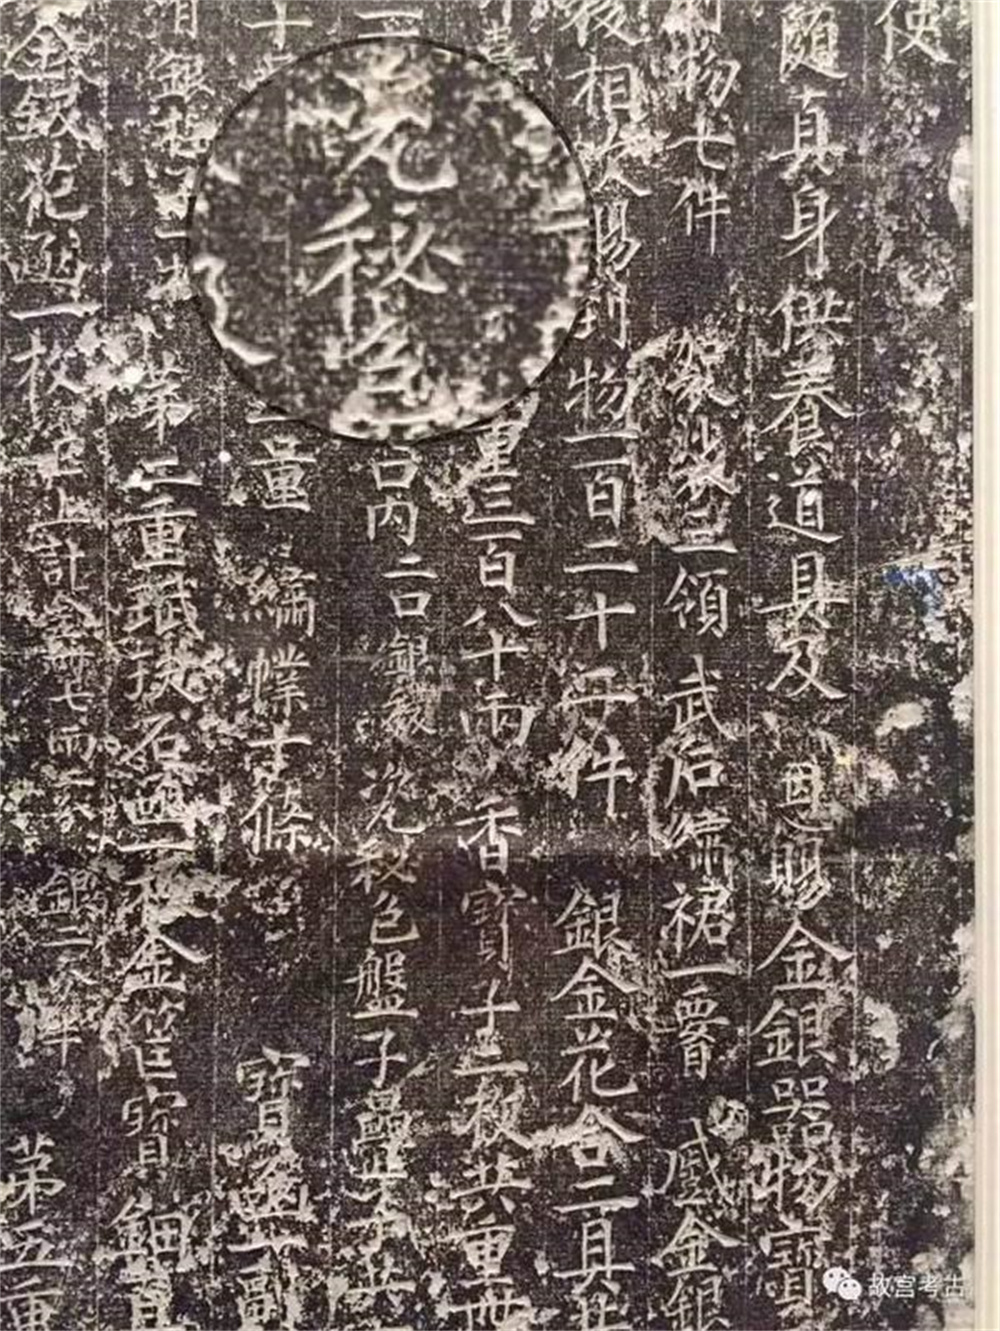 使
隨真身供養道具及 恩賜金銀器物寶
物七件 袈裟三領 武后繡裙一腰 蹙金銀
後相次賜到物一百二十二件 銀金花合二具共
重三百八十兩 香寶子二枚共重卌
瓷秘色
口內二口銀稜 瓷秘色盤子疊子共
量 繡幞十條 寶函一副
第二重珷玞石函一枚金筐寶鈿真
金銀花函一枚已上計金卌七兩 銀二分半 第五重
故宫考古